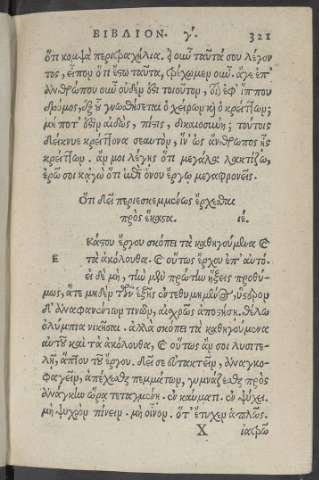 ΒΙΒΛΙΟΝ. γ΄. 321
ὅτι κομψὰ περιτραχήλια. ἐμοῦ ταῦτά σου λέγον
τος, εἶπον ὅτι ἔστω ταῦτα, φέρωμεν οὖν. ἄγε ἐπ᾽
ἀνθρώπου οὐδέν ὅτι τοιοῦτον, δι᾽ ἐφ᾽ ἵππου
δρόμος, ἐξ οὗ γνωσθήσεται ὁ χείρων καὶ ὁ κρείττων;
μή ποτ᾽ ἐστὶν αἰδὼς, πίστις, δικαιοσύνη; τούτοις
δείκνυε κρείττονα σεαυτὸν, ἵν᾽ ὡς ἄνθρωπος ᾖς
κρείττων. ἄν μοι λέγῃς ὅτι μεγάλα λακτίζω,
ἐρῶ σοι κἀγὼ ὅτι ἐπὶ ὄνου ἔργῳ μεγαφρονεῖς.
Ὅτι δεῖ περιεσκεμμένως ἔρχεσθαι
πρὸς ἕκαστα. ιέ.
Εκάστου ἔργου σκόπει τὰ καθηγούμενα καὶ
ε τὰ ἀκόλουθα. καὶ οὕτως ἔρχου ἐπ᾽ αὐτό.
εἰ δὲ μὴ, τὴν μὲν πρώτην ἥξεις προθύ-
μως, ἅτε μηδὲν τῶν ἑξῆς ἐντεθυμημένος, ὕστερον
δ᾽ ἀναφανέντων τινῶν, αἰσχρῶς ἀποστήσῃ. θέλω
ὀλύμπια νικῆσαι. ἀλλὰ σκόπει τὰ καθηγούμενα
αὐτοῦ καὶ τὰ ἀκόλουθα, καὶ οὕτως ἄν σοι λυσιτε-
λῇ, ἅπτου τοῦ ἔργου. δεῖ σε εὐτακτεῖν, ἀναγκο-
φαγεῖν, ἀπέχεσθαι πεμμάτων, γυμνάζεσθαι πρὸς
ἀνάγκην ὥρᾳ τεταγμένῃ. ἐν καύματι. ἐν ψύχει.
μὴ ψυχρὸν πίνειν. μὴ οἶνον. ὅτ᾽ ἔτυχεν ἁπλῶς.
X ἰατρῷ